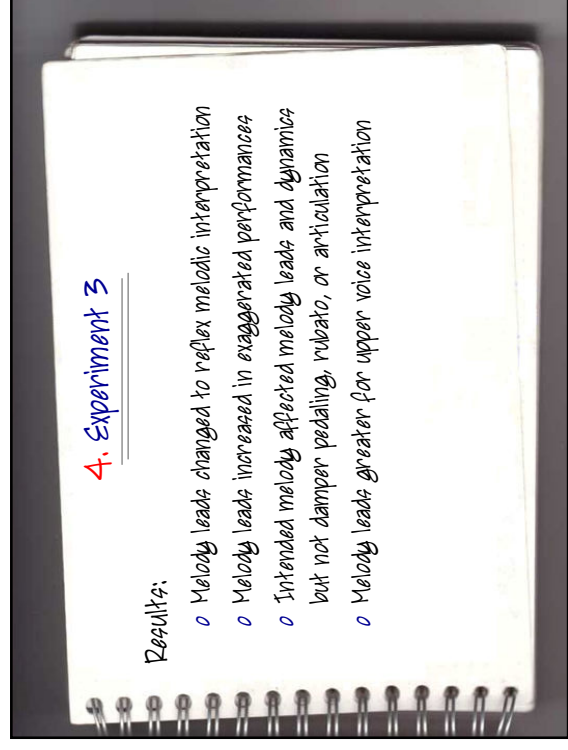 4. Experiment 3
Results:
o Melody leads changed to reflex melodic interpretation
o Melody leads increased in exaggerated performances
o Intended melody affected melody leads and dynamics
but not damper pedaling, rubato, or articulation
o Melody leads greater for upper voice interpretation